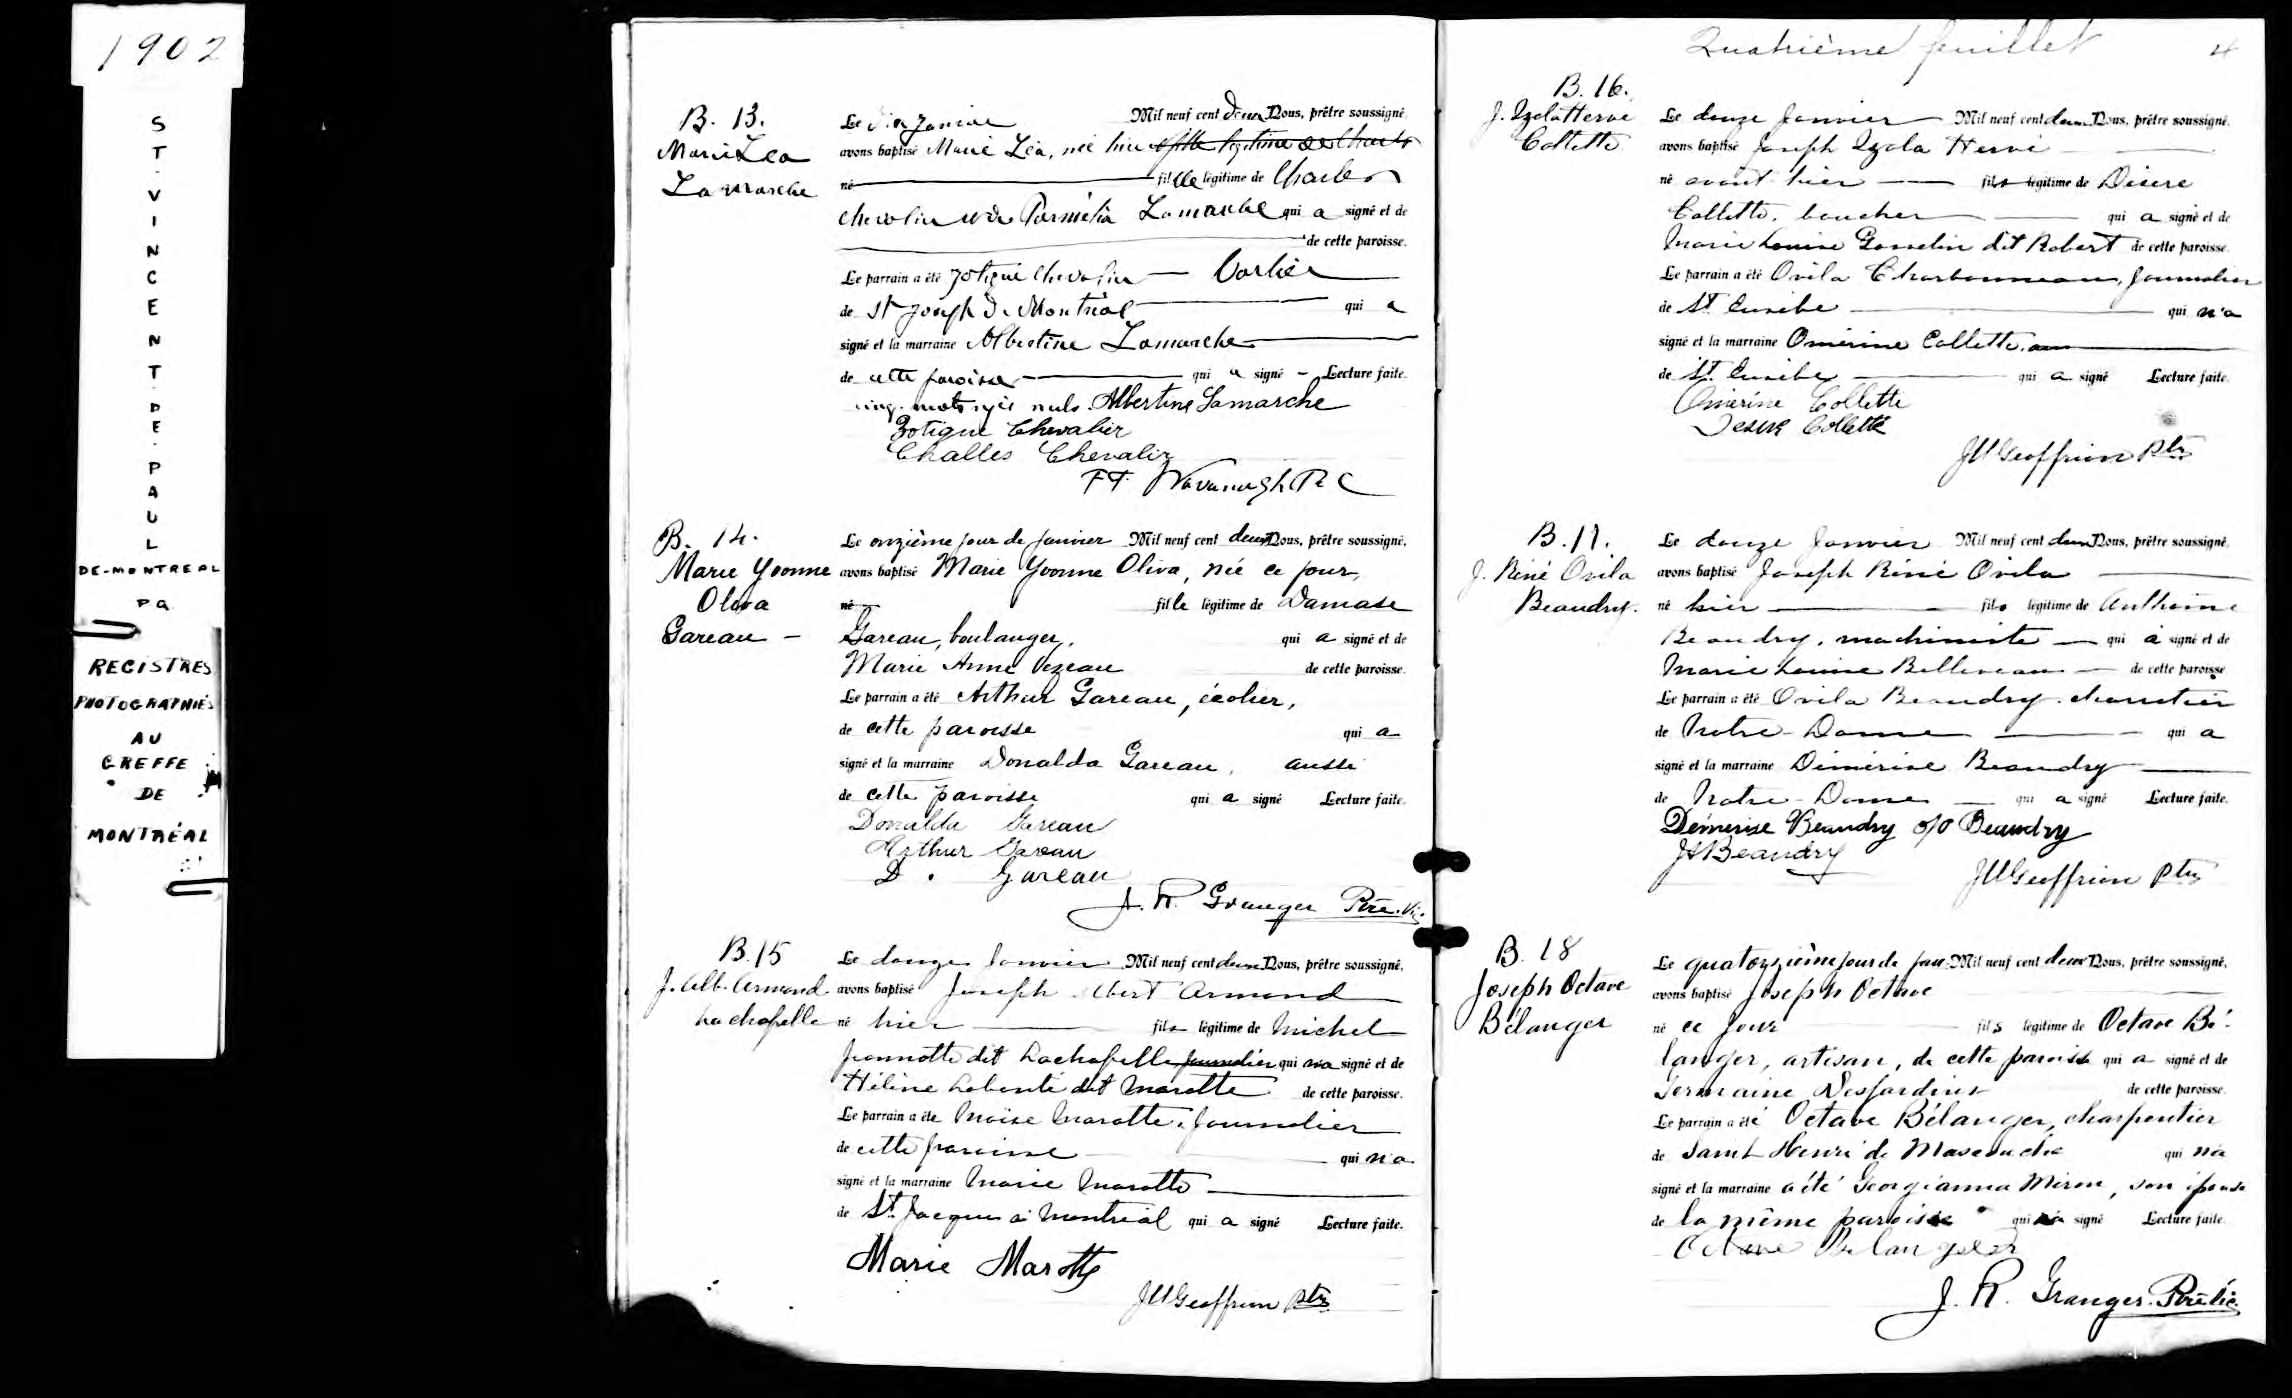 1902
ST. VINCENT-DE-PAUL
DE-MONTREAL
PQ
REGISTRES
PHOTOGRAPHIÉS
AU
GREFFE
DE
MONTRÉAL
B. 13.
Marie Lea
Lamarche
Le dix Janvier Mil neuf cent deux Nous, prêtre soussigné,
avons baptisé Marie Léa, née hier fille légitime de Charles
né fille légitime de Charles
Chevalier et de Parmélia Lamarche qui a signé et de
de cette paroisse.
Le parrain a été Zotique Chevalier
de St Joseph de Montréal qui a
signé et la marraine Albertine Lamarche
de cette paroisse qui a signé - Lecture faite.
cinq mots rayés nuls. Albertine Lamarche
Zotique Chevalier
Challes Chevalier
B. 14.
Marie Yvonne
Oliva
Gareau -
Le onzième jour de Janvier Mil neuf cent deux Nous, prêtre soussigné,
avons baptisé Marie Yvonne Oliva, née ce jour,
né fille légitime de Damase
Gareau, boulanger, qui a signé et de
Marie Anne Vezeau de cette paroisse.
Le parrain a été Arthur Gareau, écolier,
de cette paroisse qui a
signé et la marraine Donalda Gareau, aussi
de cette paroisse qui a signé Lecture faite.
Donalda Gareau
Arthur Gareau
D. Gareau
J. R. Granger Ptre. Vic.
B. 15
J. Alb. Armand
Lachapelle
Le douze Janvier Mil neuf cent deux Nous, prêtre soussigné,
avons baptisé Joseph Albert Armand
né hier fils légitime de Michel
Jeannotte dit Lachapelle journalier qui n'a signé et de
Hélène Labonté dit Marotte de cette paroisse.
Le parrain a été Moïse Marotte, journalier
de cette paroisse qui n'a
signé et la marraine Marie Marotte
de St. Jacques à Montréal qui a signé Lecture faite.
Marie Marotte
JU Geoffrion Ptre
Quatrième feuillet 4
B. 16.
J. Izola Hervé
Collette
Le douze Janvier Mil neuf cent deux Nous, prêtre soussigné,
avons baptisé Joseph Izola Hervé
né avant-hier fils légitime de Désiré
Collette, boucher qui a signé et de
Marie Louise Gosselin dit Robert de cette paroisse.
Le parrain a été Ovila Charbonneau, journalier
de St. Eusèbe qui n'a
signé et la marraine Omérine Collette
de St. Eusèbe qui a signé Lecture faite.
Omérine Collette
Desiré Collette
JU Geoffrion Ptre
B. 17.
J. Réné Ovila
Beaudry.
Le douze Janvier Mil neuf cent deux Nous, prêtre soussigné,
avons baptisé Joseph Réné Ovila
né hier fils légitime de Anthime
Beaudry, machiniste qui a signé et de
Marie Louise Belliveau de cette paroisse.
Le parrain a été Ovila Beaudry, charretier
de Notre-Dame qui a
signé et la marraine Démérise Beaudry
de Notre-Dame qui a signé Lecture faite.
Démerise Beaudry Beaudry
Beaudry
JU Geoffrion Ptre
B. 18
Joseph Octave
Bélanger
Le quatorzième jour de jan. Mil neuf cent deux Nous, prêtre soussigné,
avons baptisé Joseph Octave
né ce jour fils légitime de Octave Bé-
langer, artisan, de cette paroisse qui a signé et de
Germaine Desjardins de cette paroisse.
Le parrain a été Octave Bélanger, charpentier
de Saint Henri de Mascouche qui n'a
signé et la marraine a été Georgianna Miron, son épouse
de la même paroisse qui n'a signé Lecture faite.
Octave Belangeer
J. R. Granger. Ptre Vic.